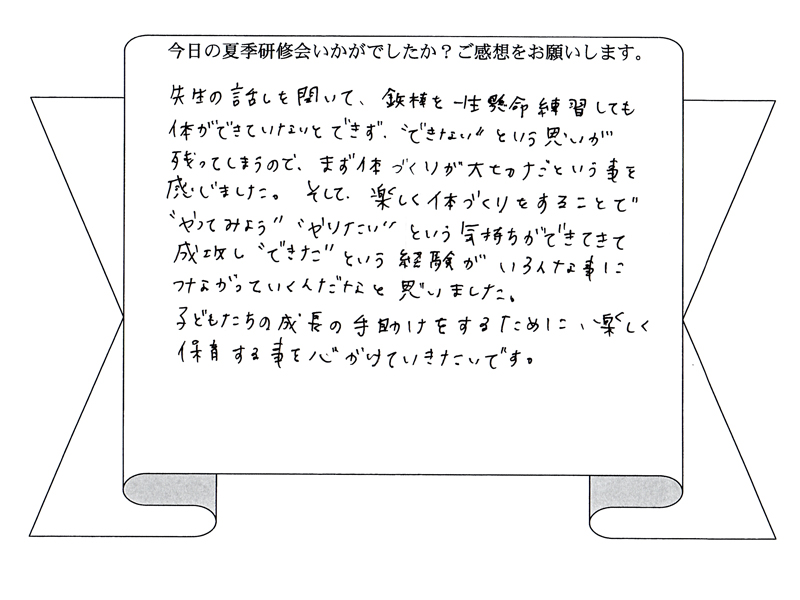 今日の夏季研修会いかがでしたか？ご感想をお願いします。
先生の話しを聞いて、鉄棒を一生懸命練習しても
体ができていないとできず、“できない”という思いが
残ってしまうので、まず体づくりが大切だという事を
感じました。そして、楽しく体づくりをすることで
“やってみよう”“やりたい”という気持ちができてきて
成攻し“できた”という経験がいろんな事に
つながっていくんだなと思いました。
子どもたちの成長の手助けをするために、楽しく
保育する事を心がけていきたいです。